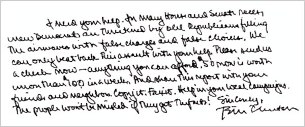 I need your help. In many House and Senate races,
new Democrats are threatened by well Republicans filling
the airwaves with false charges and false choices. We
can only beat back this assault with your help. Please send us
a check now—anything you can afford. $50 now is worth
more than 100 in a week. And share this report with your
friends and neighbors. Copy it. Fax it. Help in your local campaigns.
The people won't be misled if they get the facts!
Sincerely,
Bill Clinton